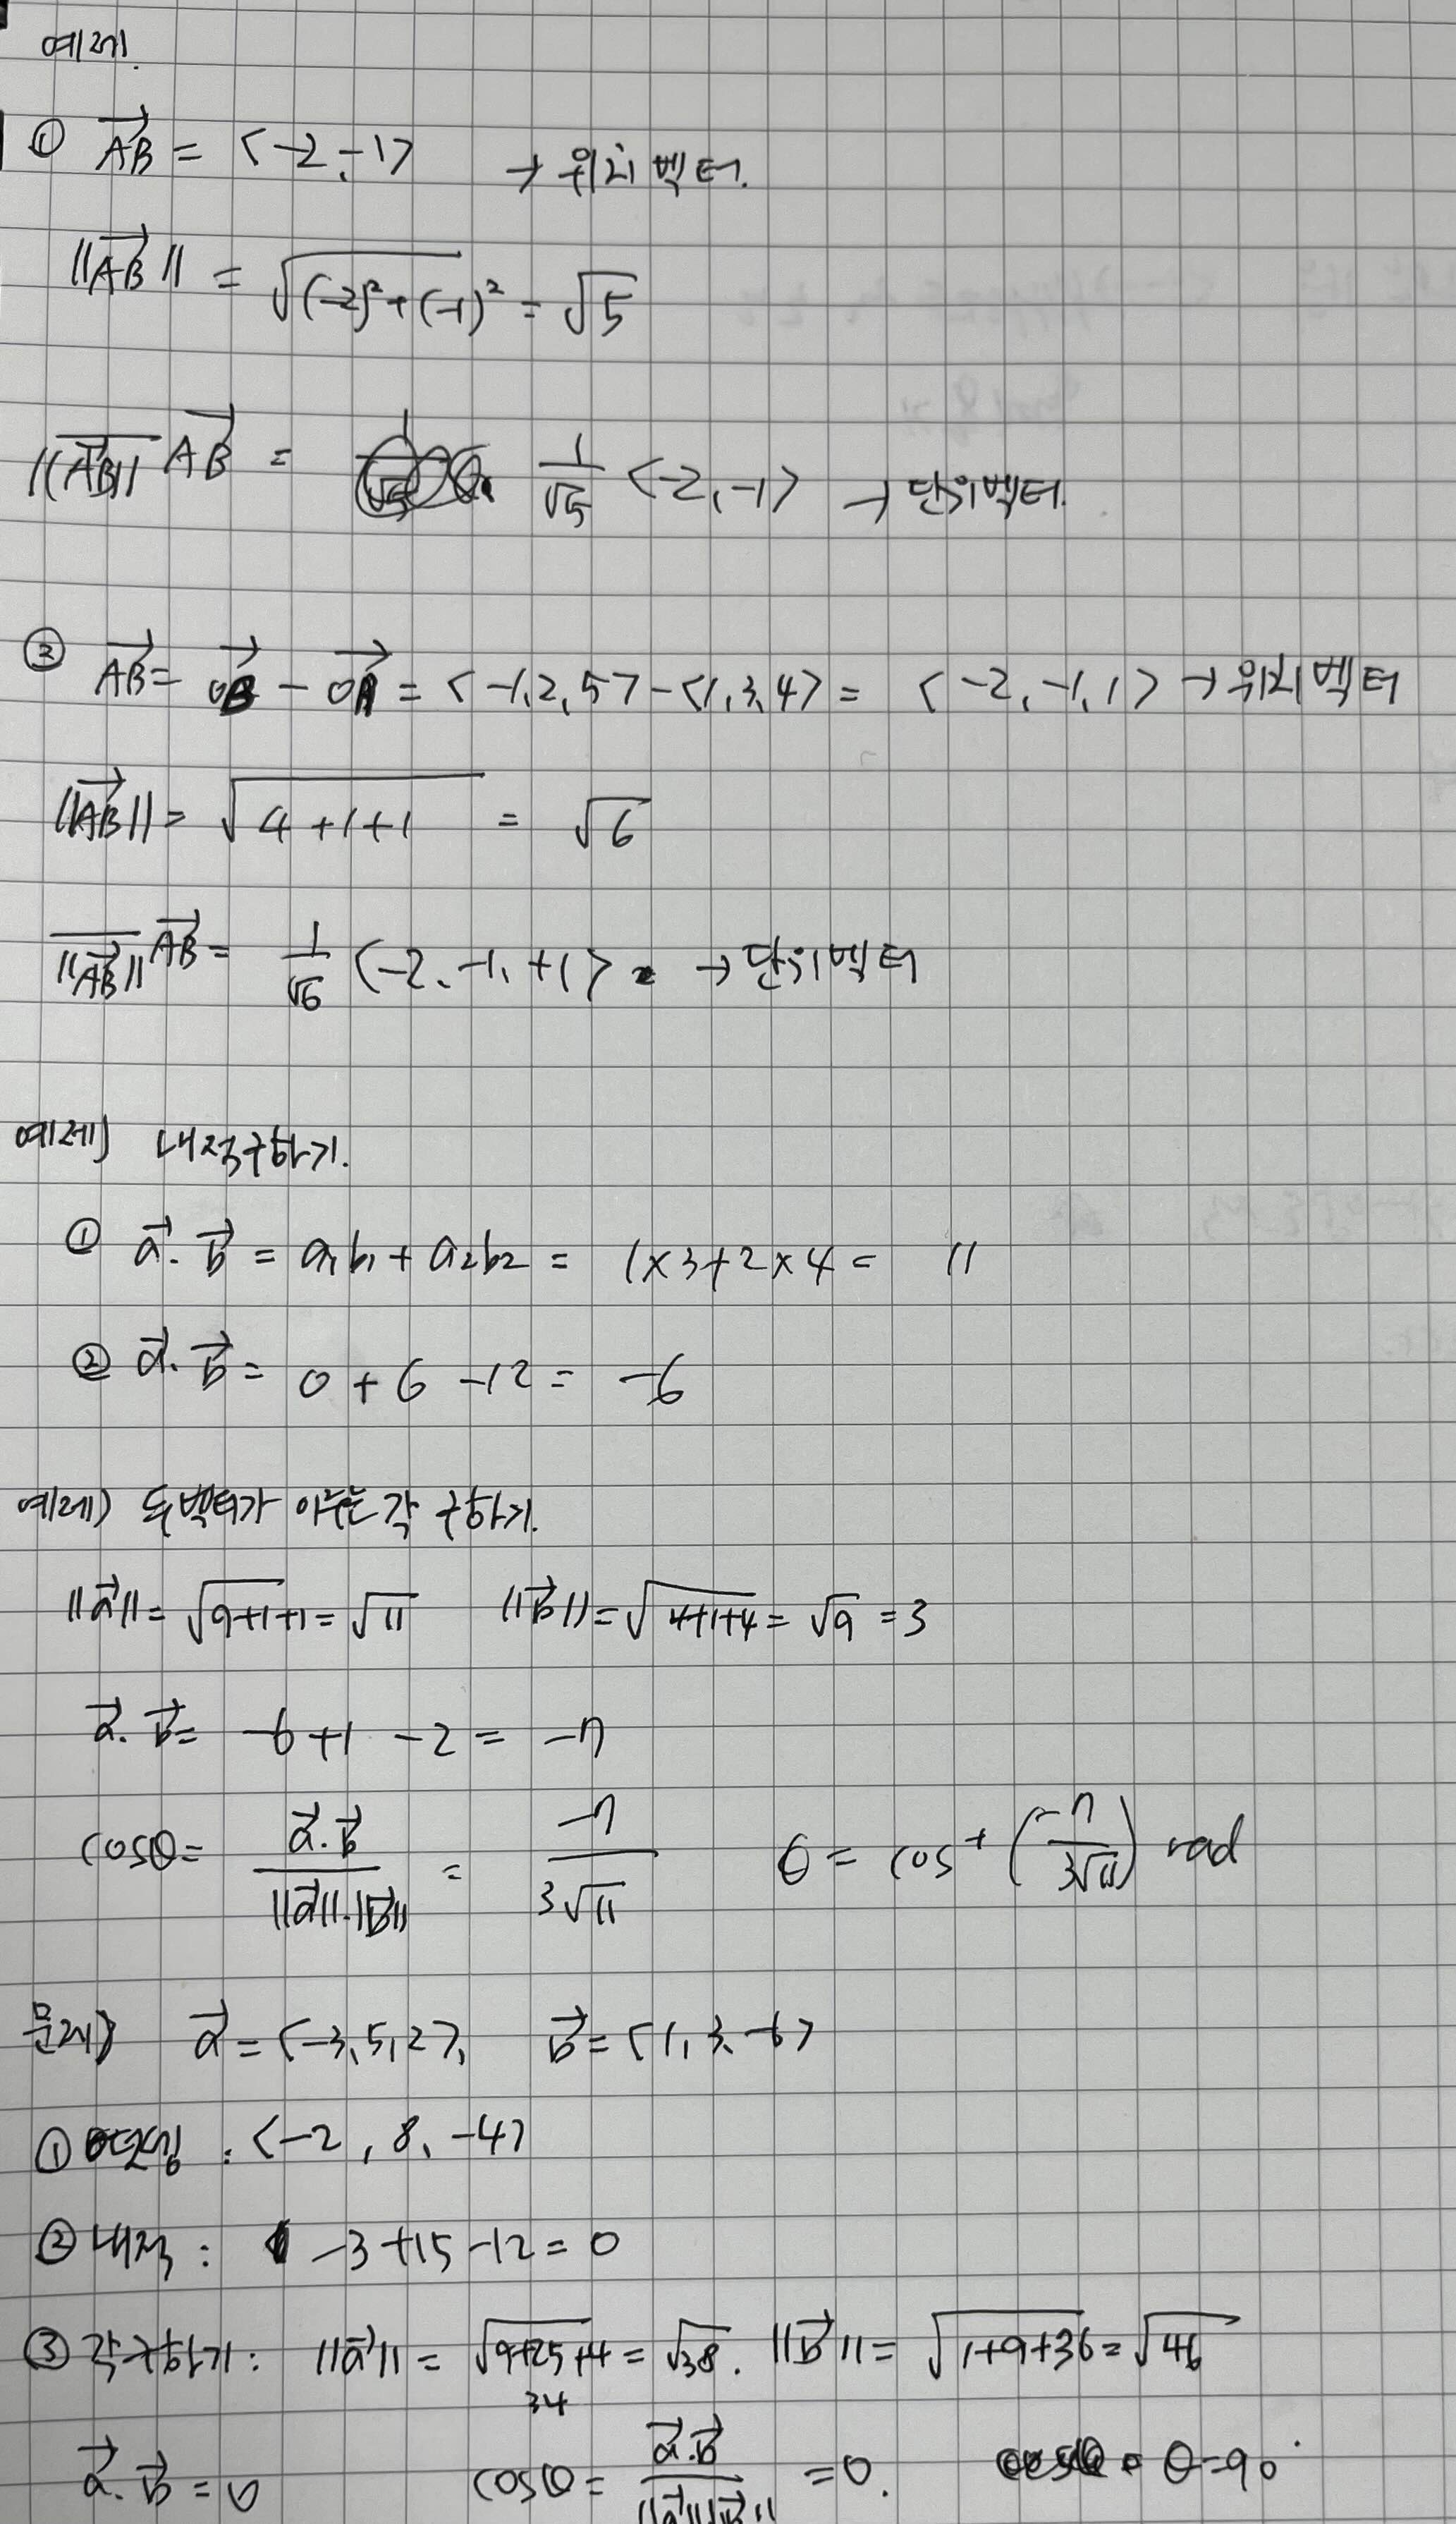 예제.
① AB = <-2, -1> → 위치벡터.
||AB|| = √(-2)²+(-1)² = √5
||AB|| AB = 1/√5 <-2, -1> → 단위벡터.
② AB = OB - OA = <-1, 2, 5> - <1, 3, 4> = <-2, -1, 1> → 위치벡터
||AB|| = √4+1+1 = √6
||AB|| AB = 1/√6 <-2, -1, +1> → 단위벡터
예제) 내적구하기.
① a·b = a₁b₁ + a₂b₂ = 1×3+2×4 = 11
② a·b = 0 + 6 -12 = -6
예제) 두벡터가 이루는 각 구하기.
||a|| = √9+1+1 = √11 ||b|| = √4+1+4 = √9 = 3
a·b = -6+1 -2 = -7
cosθ = a·b / ||a||·||b|| = -7 / 3√11 θ = cos⁻¹ (-7 / 3√11) rad
문제) a = <-3, 5, 2>, b = <1, 3, -6>
① 덧셈 : <-2, 8, -4>
② 내적 : -3+15-12=0
③ 각구하기 : ||a|| = √9+25+4 = √38. ||b|| = √1+9+36 = √46
34
a·b = 0 cosθ = a·b / ||a||||b|| = 0. θ=90°